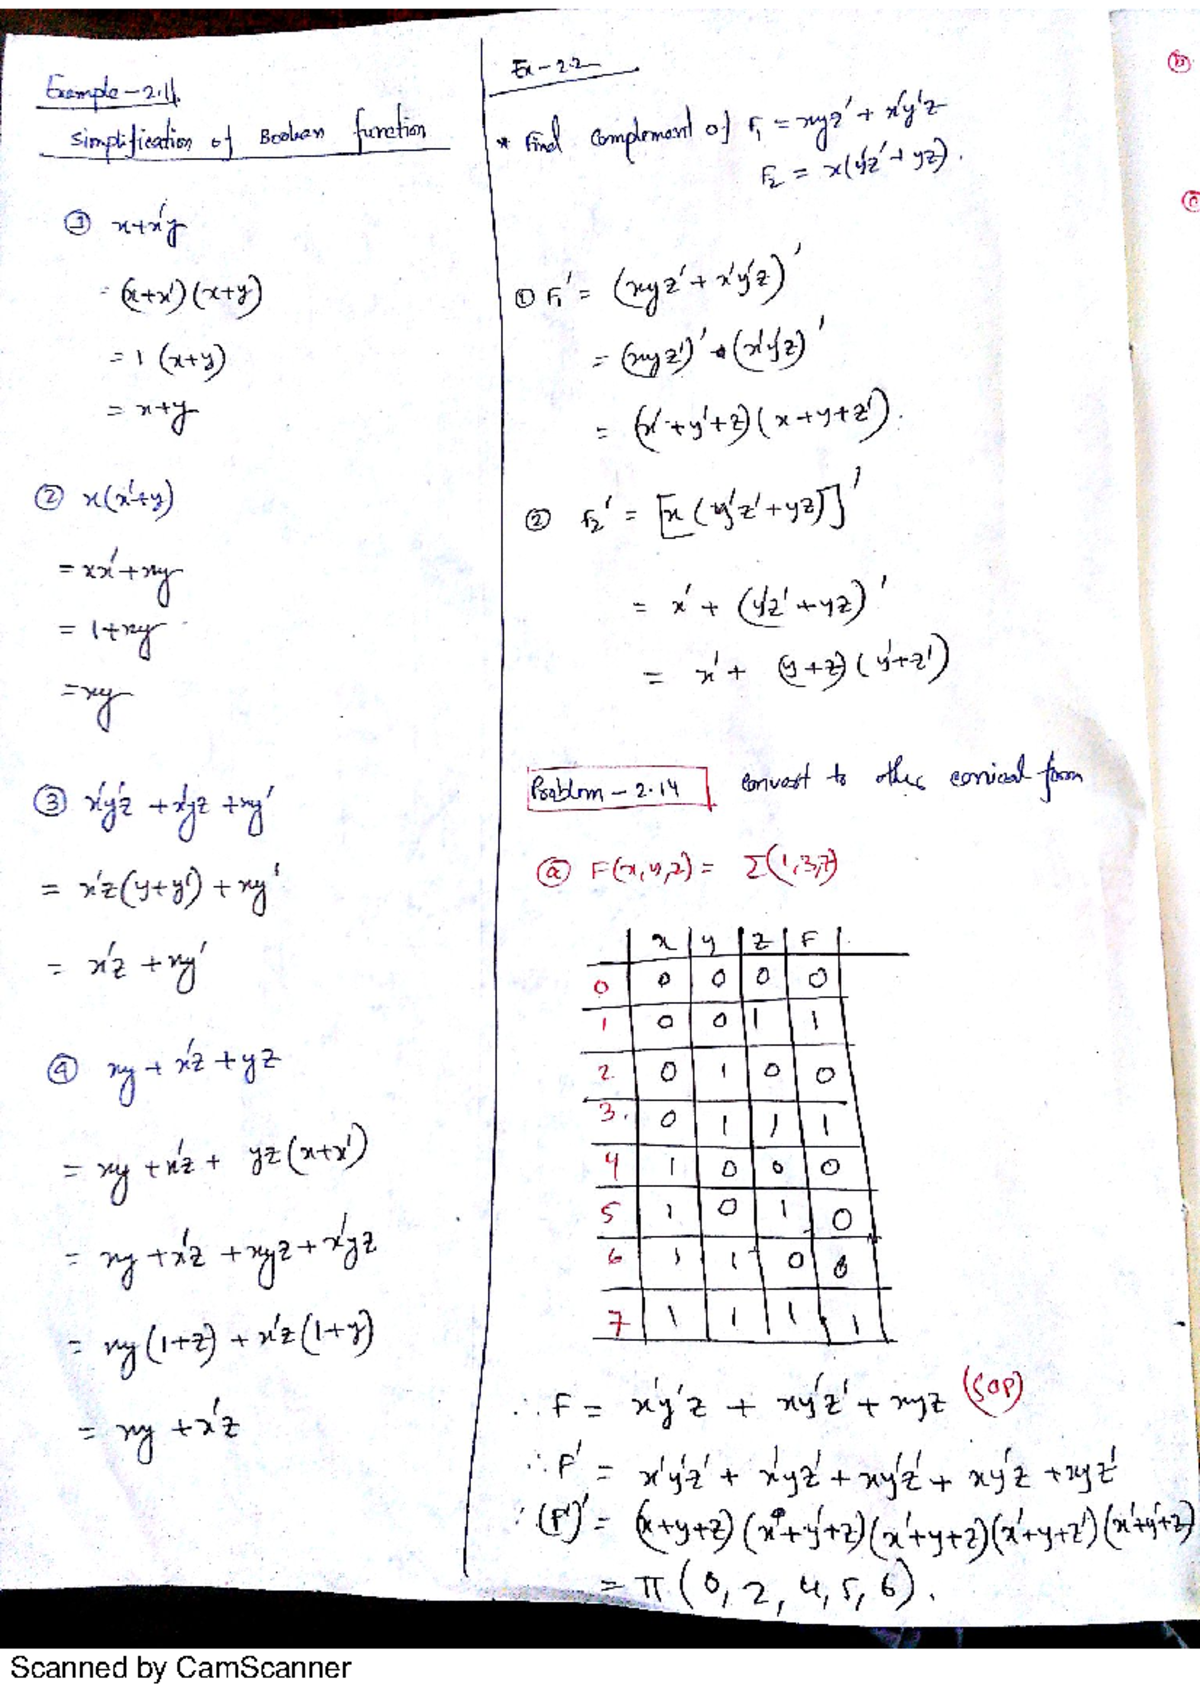 Example-2.1
Simplification of Boolean function
① x+x'y
= (x+x')(x+y)
= 1 (x+y)
= x+y
② x(x'+y)
= xx'+xy
= 1+xy
= xy
③ x'y'z + x'yz + xy'
= x'z(y+y') + xy'
= x'z + xy'
④ xy + x'z + yz
= xy + x'z + yz(x+x')
= xy + x'z + xyz + x'yz
= xy(1+z) + x'z(1+y)
= xy + x'z
Ex-2.2
* Find complement of F₁ = xyz' + x'y'z
F₂ = x(y'z' + yz).
① F₁' = (xyz' + x'y'z)'
= (xyz')' • (x'y'z)'
= (x'+y'+z)(x+y+z').
② F₂' = [x(y'z'+yz)]'
= x' + (y'z'+yz)'
= x' + (y+z)(y'+z')
Problem-2.14 convert to other conical form
ⓐ F(x,y,z) = Σ(1,3,7)
x y z F
0 0 0 0 0
1 0 0 1 1
2. 0 1 0 0
3. 0 1 1 1
4 1 0 0 0
5 1 0 1 0
6 1 1 0 0
7 1 1 1 1
∴ F = x'y'z + xy'z' + xyz (SOP)
∴ F' = x'y'z' + x'yz' + xy'z' + xy'z + xyz'
∴ (F')' = (x+y+z)(x+y'+z)(x'+y+z)(x'+y+z')(x'+y'+z)
= π(0,2,4,5,6).
ⓑ
ⓒ
Scanned by CamScanner